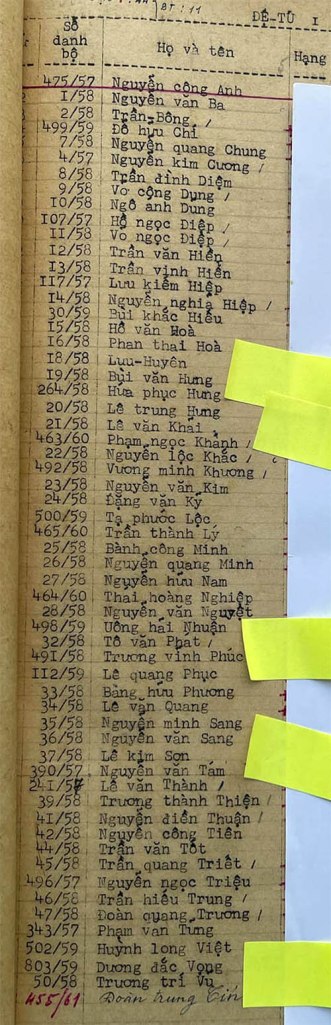 ĐỆ-TỬ I
Số danh bộ Họ và tên Hạng
475/57 Nguyễn công Anh
I/58 Nguyễn văn Ba
2/58 Trần-Bông /
499/59 Đỗ hữu Chí
7/58 Nguyễn quang Chung
4/57 Nguyễn kim Cương /
8/58 Trần đình Diệm
9/58 Võ công Dụng /
I0/58 Ngô anh Dũng
I07/57 Hồ ngọc Điệp /
II/58 Võ ngọc Điệp /
I2/58 Trần văn Hiền
I3/58 Trần vịnh Hiển
II7/57 Lưu kiếm Hiệp
I4/58 Nguyễn nghĩa Hiệp /
30/59 Bùi khắc Hiếu
I5/58 Hồ văn Hoà
I6/58 Phan thái Hoà
I8/58 Lưu-Huyên
I9/58 Bùi văn Hưng
264/58 Hứa phục Hưng
20/58 Lê trung Hưng
2I/58 Lê văn Khai /
463/60 Phạm ngọc Khánh /
22/58 Nguyễn lộc Khắc /
492/58 Vương minh Khương /
23/58 Nguyễn văn Kim
24/58 Đặng văn Ký
500/59 Tạ phước Lộc
465/60 Trần thành Lý
25/58 Bành công Minh
26/58 Nguyễn quang Minh
27/58 Nguyễn hữu Nam
464/60 Thai hoàng Nghiệp
28/58 Nguyễn văn Nguyệt
498/59 Uông hải Nhuận
32/58 Tô văn Phát /
49I/58 Trương vĩnh Phúc
II2/59 Lê quang Phục
33/58 Bàng hữu Phương
34/58 Lê văn Quang
35/58 Nguyễn minh Sang
36/58 Nguyễn văn Sang
37/58 Lê kim Sơn
390/57 Nguyễn văn Tám
24I/57 Lê văn Thành /
39/58 Trương thành Thiện /
4I/58 Nguyễn điền Thuận /
42/58 Nguyễn công Tiên
44/58 Trần văn Tốt
45/58 Trần quang Triết /
496/57 Nguyễn ngọc Triệu
46/58 Trần hiếu Trung /
47/58 Đoàn quang Trương /
343/57 Phạm văn Tùng
502/59 Huỳnh long Việt
803/59 Dương đắc Vọng
50/58 Trương trí Vụ
455/61 Đoàn trung Tín